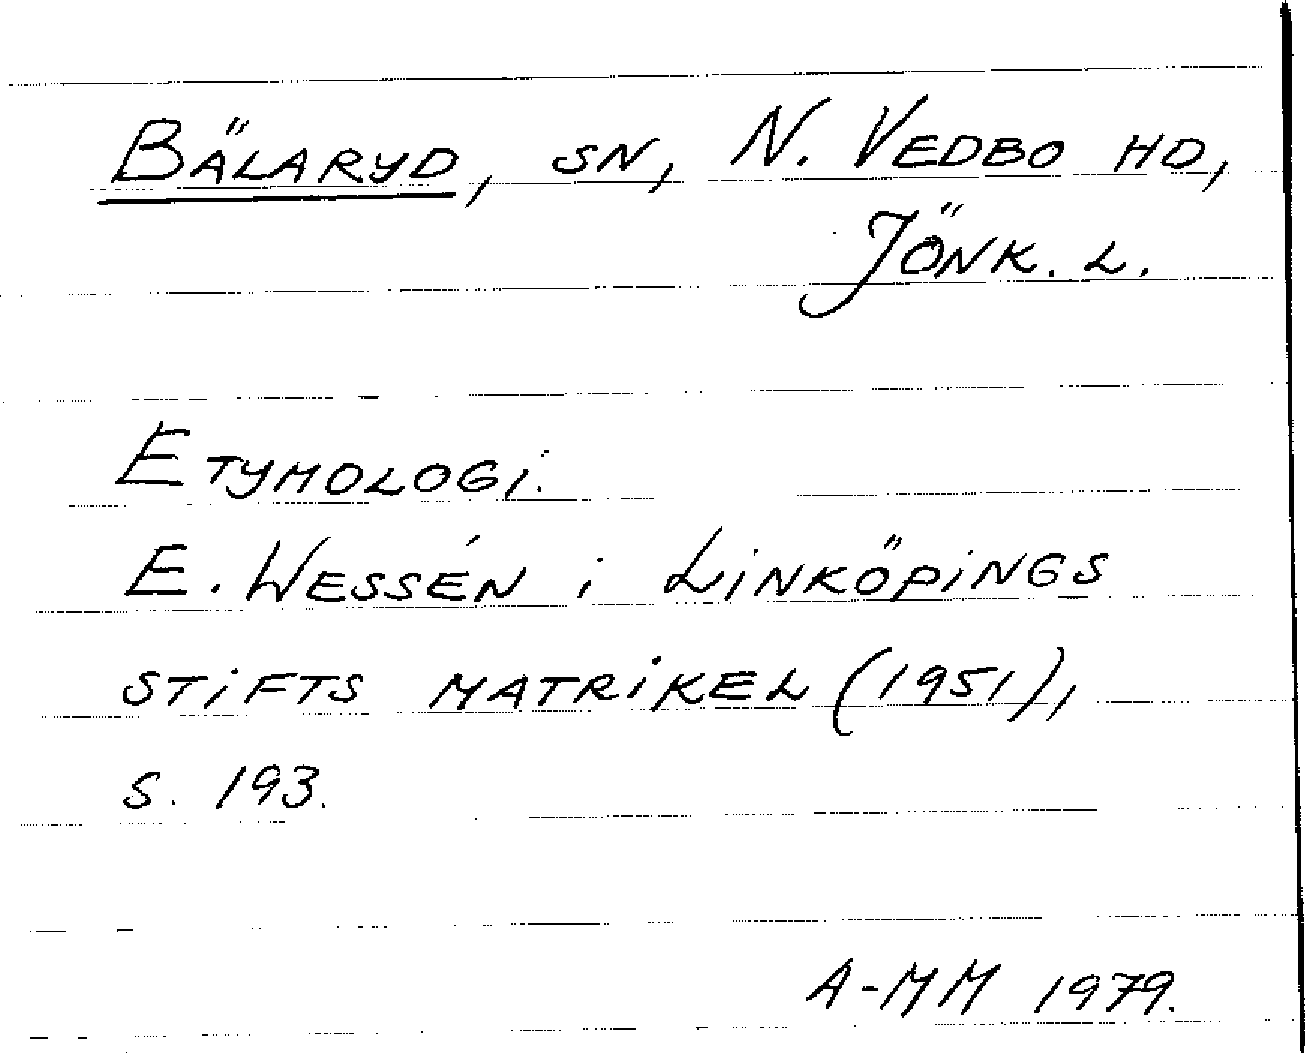 BÄLARYD, SN, N. VEDBO HD,
JÖNK. L.
ETYMOLOGI.
E. WESSÉN i LINKÖPINGS
STIFTS MATRIKEL (1951),
S. 193.
A-MM 1979.